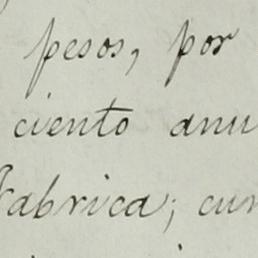 pesos, por
ciento anu
Fabrica; cu